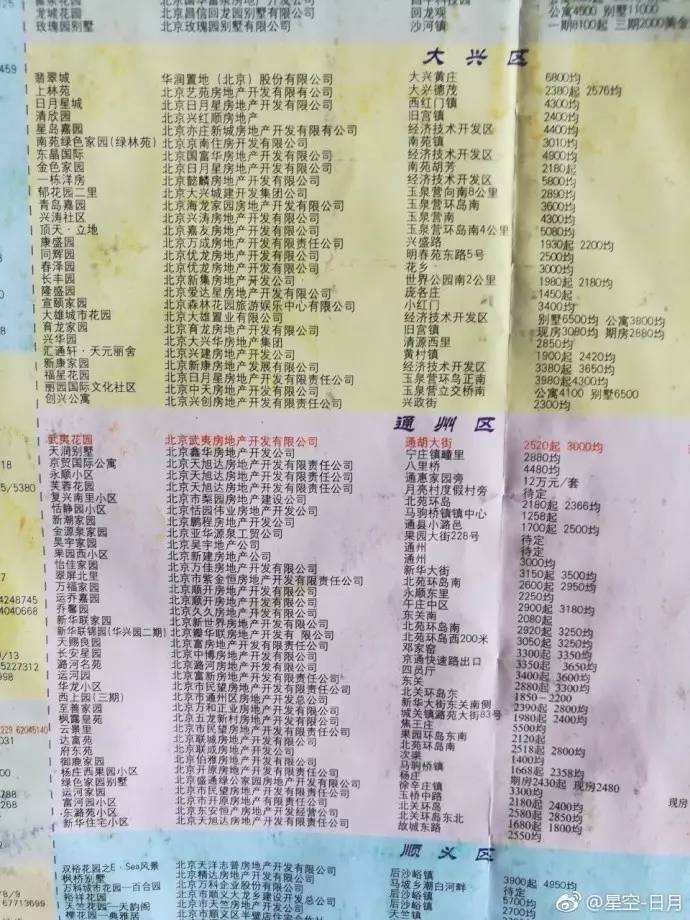 龙城花园 北京昌信回龙园别墅有限公司 回龙观 公寓4500 别墅11000
玫瑰园别墅 北京玫瑰园别墅有限公司 沙河镇 一期8100起 三期2000美金
大兴区
翡翠城 华润置地(北京)股份有限公司 大兴黄庄 6800均
上林苑 北京艺苑房地产开发有限公司 大兴德茂 2380起 2576均
日月星城 北京日月星房地产开发有限公司 西红门镇 4300均
清欣园 北京兴红顺房地产 旧宫镇 2400均
星岛嘉园 北京亦庄新城房地产开发有限公司 经济技术开发区 4400均
南苑绿色家园(绿林苑) 北京京南住房开发有限公司 南苑镇 3010均
东晶国际 北京国富华房地产开发有限公司 经济技术开发区 4900均
金色家园 北京日月星房地产开发有限公司 南苑胡芳 2180起
一栋洋房 北京懿麟房地产开发有限公司 经济技术开发区 5800均
郁花园二里 北京大兴城建开发集团公司 玉泉营向南8公里 2890均
青岛嘉园 北京海龙家园房地产开发有限公司 玉泉营环岛南 3600均
兴涛社区 北京兴涛房地产开发有限公司 玉泉营南 4300均
顶天·立地 北京嘉友房地产开发有限公司 玉泉营环岛南4公里 5080均
康盛园 北京万成房地产开发有限责任公司 兴盛路 1930起 2200均
同辉园 北京优龙房地产开发有限公司 明春苑东路5号 2500均
春泽园 北京优龙房地产开发有限公司 花乡 3000均
长丰园 北京新集房地产开发公司 世界公园南2公里 1980起 2180均
隆盛园 北京爱达星房地产开发有限公司 庞各庄 1450起
宣颐家园 北京森林花园旅游娱乐中心有限公司 小红门 3400均
大雄城市花园 北京大雄置业有限公司 经济技术开发区 别墅6500均 公寓3800均
育龙家园 北京育龙房地产开发有限公司 旧宫镇 现房3080均 期房2880均
兴华园 北京大兴华房地产集团 清源西里 2850均
汇通轩·天元丽舍 北京兴建房地产开发公司 黄村镇 1900起 2420均
新康家园 北京新康房地产发展有限公司 经济技术开发区 3380起 3650均
福星花园 北京日月星房地产开发有限责任公司 玉泉营环岛正南 3980起4300均
丽园国际文化社区 北京中天房地产开发有限责任公司 玉泉营立交桥南 公寓4100 别墅6500
创兴公寓 兴政街 2300均
通州区
武夷花园 北京武夷房地产开发有限公司 通胡大街 2520起 3000均
天润别墅 北京鑫华房地产开发有限公司 宁庄镇疃里 2880均
京贸国际公寓 北京天旭达房地产开发有限责任公司 八里桥 4480均
永顺小区 北京天旭达房地产开发有限责任公司 通惠家园旁 12万元/套
芙蓉花园 北京天旭达房地产开发有限责任公司 月亮村度假村旁 待定
复兴南里小区 北京市梨园房地产建设公司 北苑环岛 2180起 2366均
恬静园小区 北京恬园伟业房地产开发公司 马驹桥镇镇中心 1258起
新潮家园 北京鹏程房地产开发公司 通县小潞邑 1700起 2500均
金源泉家园 北京亚华源泉工贸公司 果园大街228号 待定
昊宇家园 北京昊宇房地产公司 通州 待定
果园西小区 北京新建房地产公司 通州 3000均
怡佳家园 北京万佳房地产开发有限公司 新华大街 3150起 3500均
翠屏北里 北京市紫金恒房地产开发有限责任公司 北苑环岛南 2600起 2950均
万福家园 北京顺开房地产开发有限公司 永顺东里 2250均
运乔嘉园 北京顺开房地产开发有限公司 午庄中区 2900起 3180均
乔馨园 北京久久房地产开发有限公司 东关南 2080起
新华联家园 北京新世界房地产开发有限公司 北苑环岛南 2920起 3250均
新华联锦园(华兴园二期) 北京卿华联房地产开发有限公司 北苑环岛西200米 3050起 3250均
天赐良园 北京富房房地产开发有限责任公司 邓家窑 3300起 3350均
长安星园 北京中博房地产开发有限公司 京通快速路出口 3350起 3650均
潞河名苑 北京潞河房地产开发有限公司 四员厅 3400起 3600均
运河园 北京富新房地产开发有限责任公司 东关 2880起 3300均
华龙小区 北京市民望房地产开发有限责任公司 北关环岛东 1850-2200
西上园(三期) 北京市通州区房地产开发总公司 新华大街东关南侧 2390起 2800均
至善家园 北京万和正业房地产开发有限公司 城关镇潞苑大街83号 1980起 2400均
枫露皇苑 北京五龙新村房地产开发有限公司 焦王庄 5500均
云景里 北京市民望房地产开发有限责任公司 果园环岛东南 2120起
达富苑 北京联城房地产开发有限公司 北苑环岛南 2518起 2800均
府东苑 北京联成房地产开发有限公司 次渠 1400均
御鹿家园 北京伯雅房地产开发有限公司 马驹桥镇 1668起 2358均
杨庄西果园小区 北京开原房地产开发有限责任公司 杨庄 期房2430起 现房2480
绿色家园别墅 北京盛通绿公家园房地产开发有限公司 徐辛庄镇 3300均
运河家园 北京市民望房地产开发有限责任公司 玉桥中路 2180起 2400均
富河园小区 北京市开原房地产开发有限责任公司 北关环岛 2580起 2850均
东潞苑小区 北京东安恒产房地产开发经营公司 北关环岛东北 1680起 1800均
新华住宅小区 北京天旭达房地产开发有限责任公司 故城东路 2550均
顺义区
双裕花园之E·Sea风景 北京天洋志普房地产开发有限公司 后沙峪镇 3900起 4950均
枫桥别墅 北京精达房地产开发有限公司 马坡乡潮白河畔 待定
万科城市花园一百合园 北京万科企业股份有限公司 后沙峪镇
裕祥花园 北京天竺房地产开发有限公司 后沙峪镇
天竺花园一天韵阁 北京市天竺房地产开发公司 天竺镇
@星空-日月